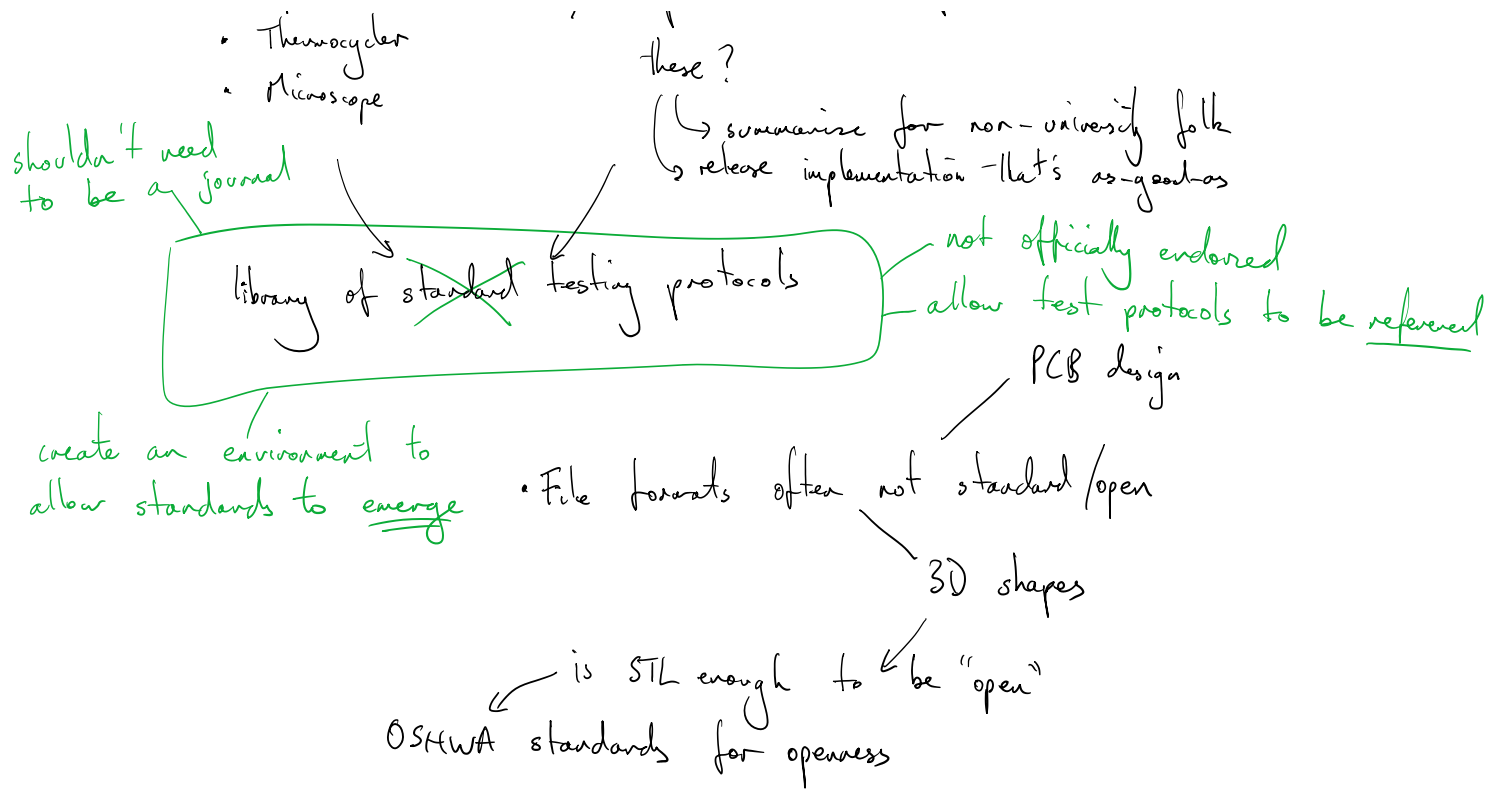 • Thermocycler
• Microscope
these?
summarise for non-university folk
release implementation that's as-good-as
shouldn't need
to be a journal
library of standard testing protocols
not officially endorsed
allow test protocols to be referened
PCB design
create an environment to
allow standards to emerge
• File formats often not standard/open
3D shapes
is STL enough to be "open"
OSHWA standards for openness